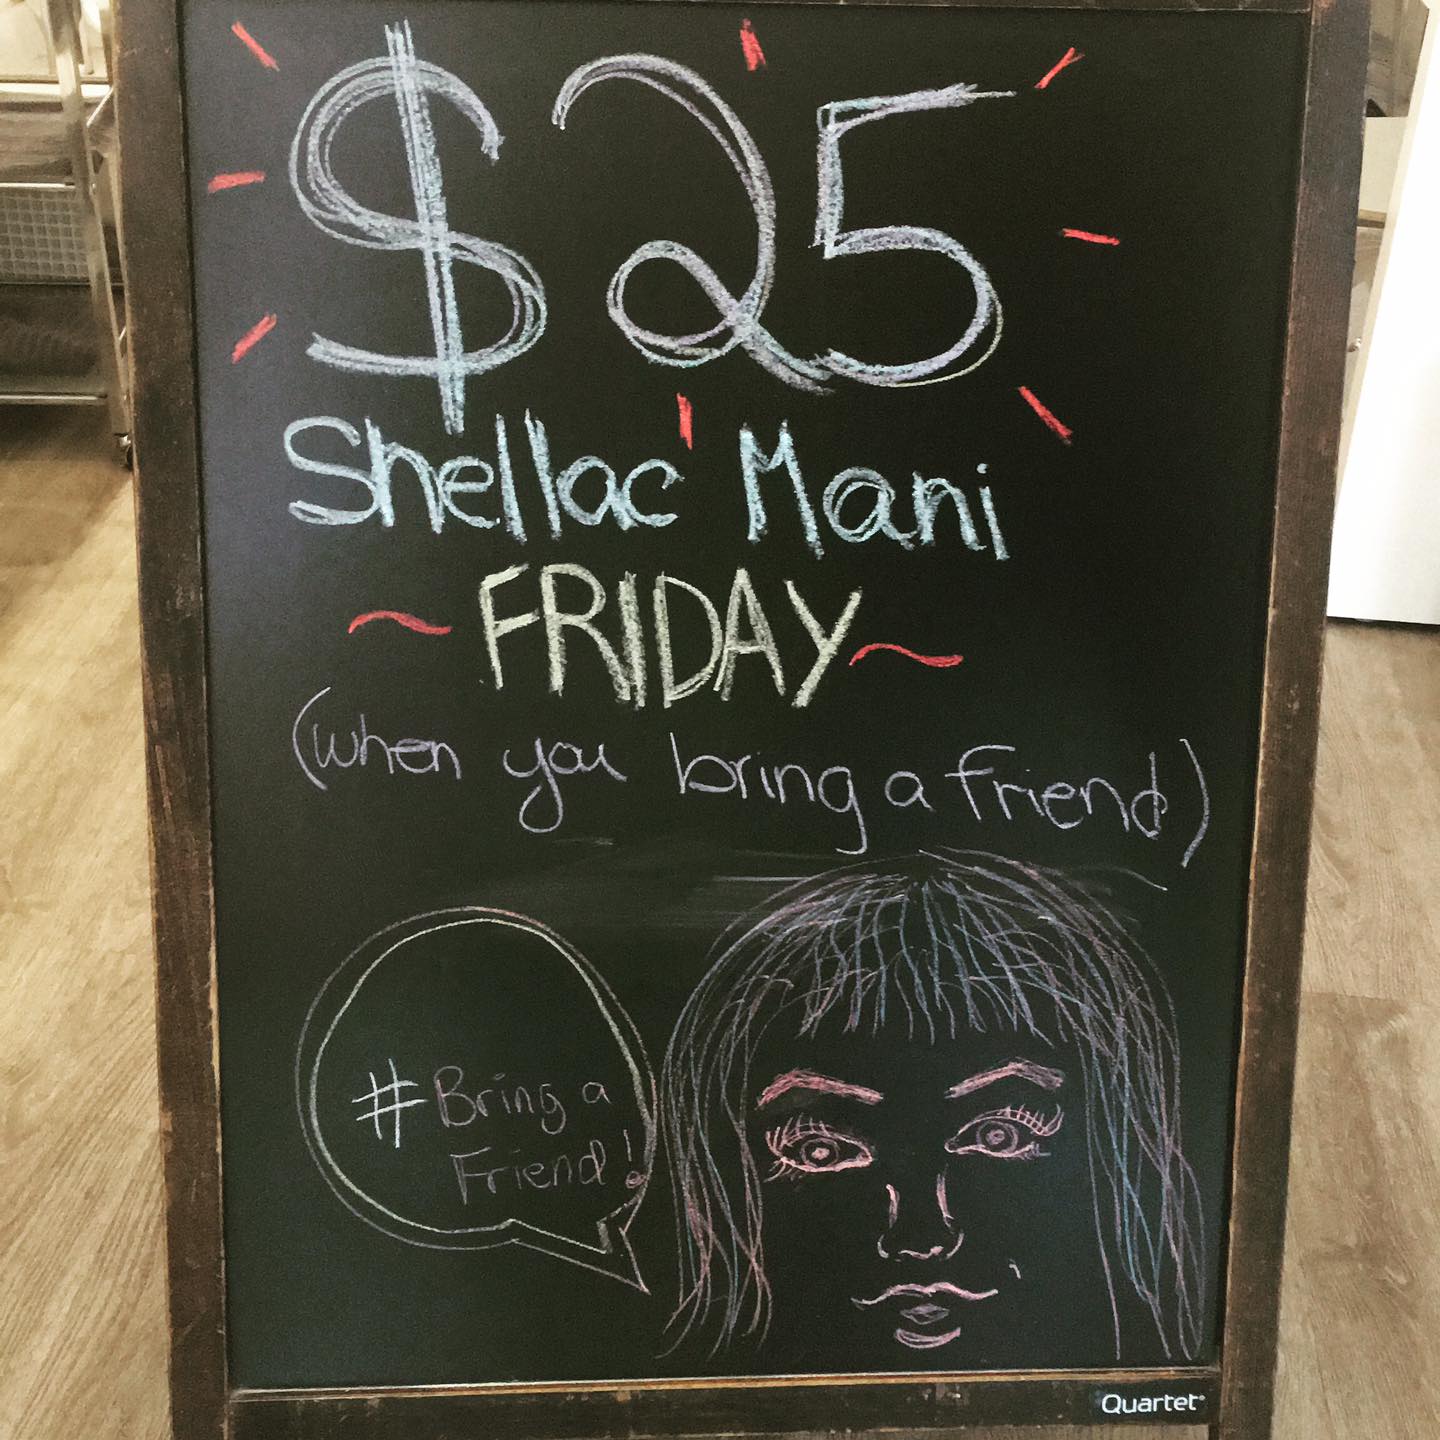 $25
Shellac Mani
~ FRIDAY ~
(when you bring a friend)
#Bring a
Friend!
Quartet®